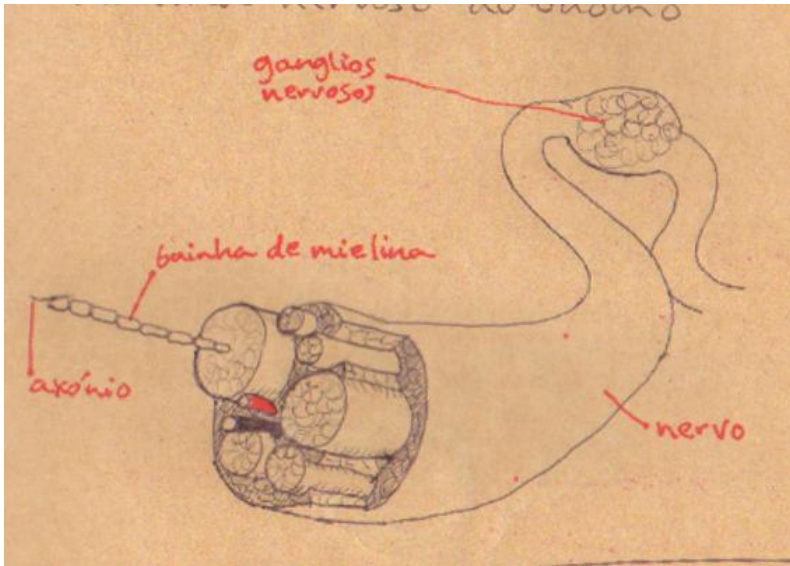 nervoso do
ganglios
nervosos
bainha de mielina
axónio
nervo